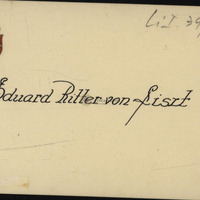 Eduard Ritter von Liszt